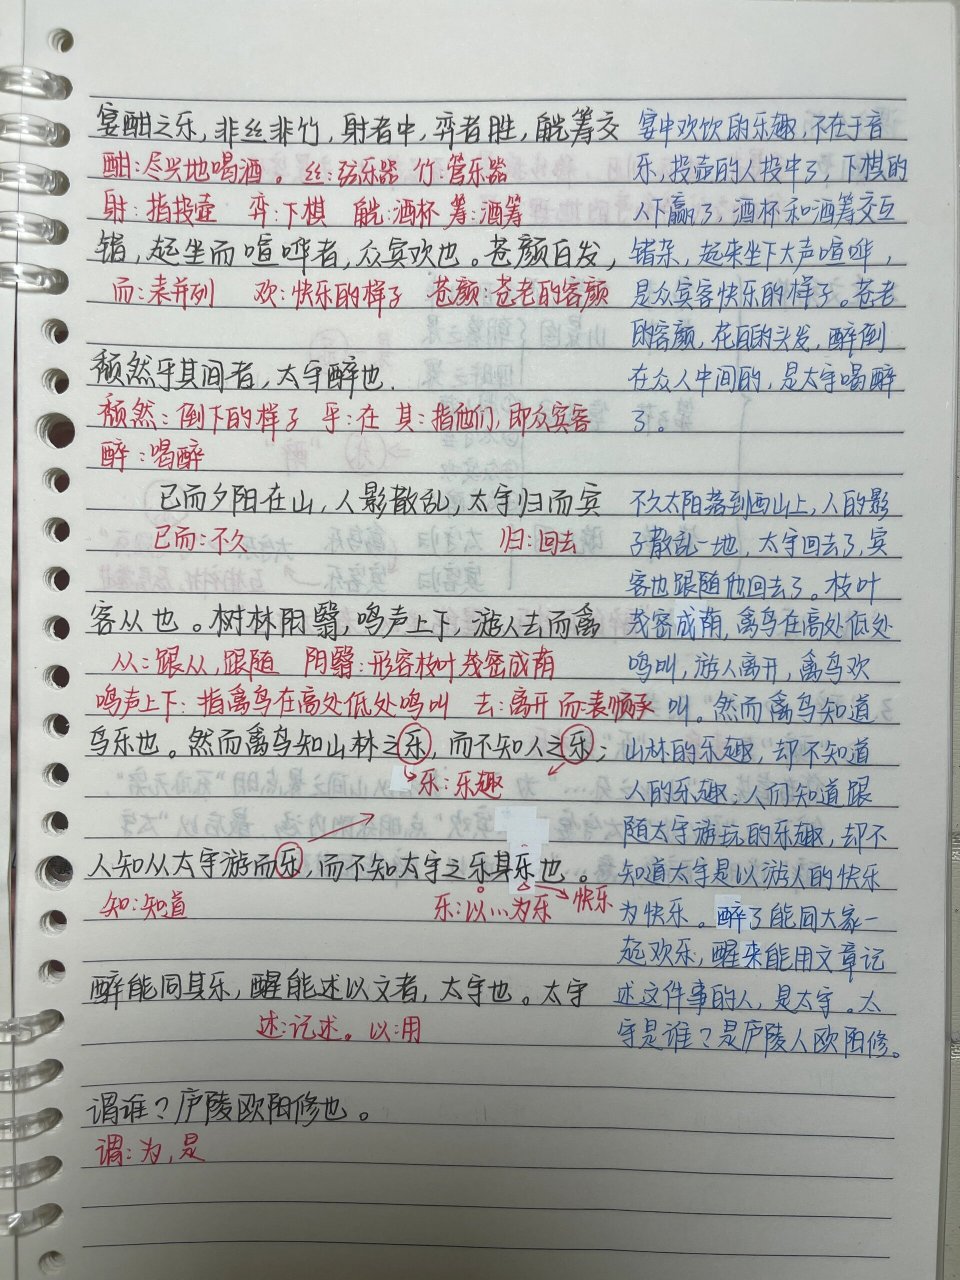 宴酣之乐,非丝非竹,射者中,弈者胜,觥筹交
酣:尽兴地喝酒。丝:弦乐器 竹:管乐器
射:指投壶 弈:下棋 觥:酒杯 筹:酒筹
错,起坐而喧哗者,众宾欢也。苍颜白发,
而:表并列 欢:快乐的样子 苍颜:苍老的容颜
颓然乎其间者,太守醉也.
颓然:倒下的样子 乎:在 其:指他们,即众宾客
醉:喝醉
已而夕阳在山,人影散乱,太守归而宾
已而:不久 归:回去
客从也。树林阴翳,鸣声上下,游人去而禽
从:跟从,跟随 阴翳:形容枝叶茂密成荫
鸣声上下:指禽鸟在高处低处鸣叫 去:离开 而:表顺承
鸟乐也。然而禽鸟知山林之乐,而不知人之乐;
乐:乐趣
人知从太守游而乐,而不知太守之乐其乐也。
知:知道 乐:以…为乐 快乐
醉能同其乐,醒能述以文者,太守也。太守
述:记述。以:用
谓谁?庐陵欧阳修也。
谓:为,是
宴中欢饮的乐趣,不在于音
乐,投壶的人投中了,下棋的
人下赢了,酒杯和酒筹交互
错杂,起来坐下大声喧哗,
是众宾客快乐的样子。苍老
的容颜,花白的头发,醉倒
在众人中间的,是太守喝醉
了。
不久太阳落到西山上,人的影
子散乱一地,太守回去了,宾
客也跟随他回去了。枝叶
茂密成荫,禽鸟在高处低处
鸣叫,游人离开,禽鸟欢
叫。然而禽鸟知道
山林的乐趣,却不知道
人的乐趣;人们知道跟
随太守游玩的乐趣,却不
知道太守是以游人的快乐
为快乐。醉了能同大家一
起欢乐,醒来能用文章记
述这件事的人,是太守。太
守是谁?是庐陵人欧阳修。